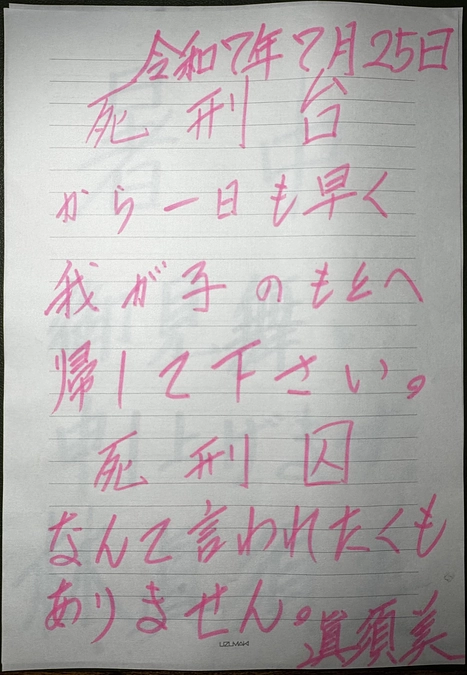 令和7年7月25日
死刑台
から一日も早く
我が子のもとへ
帰して下さい。
死刑囚
なんて言われたくも
ありません。
眞須美